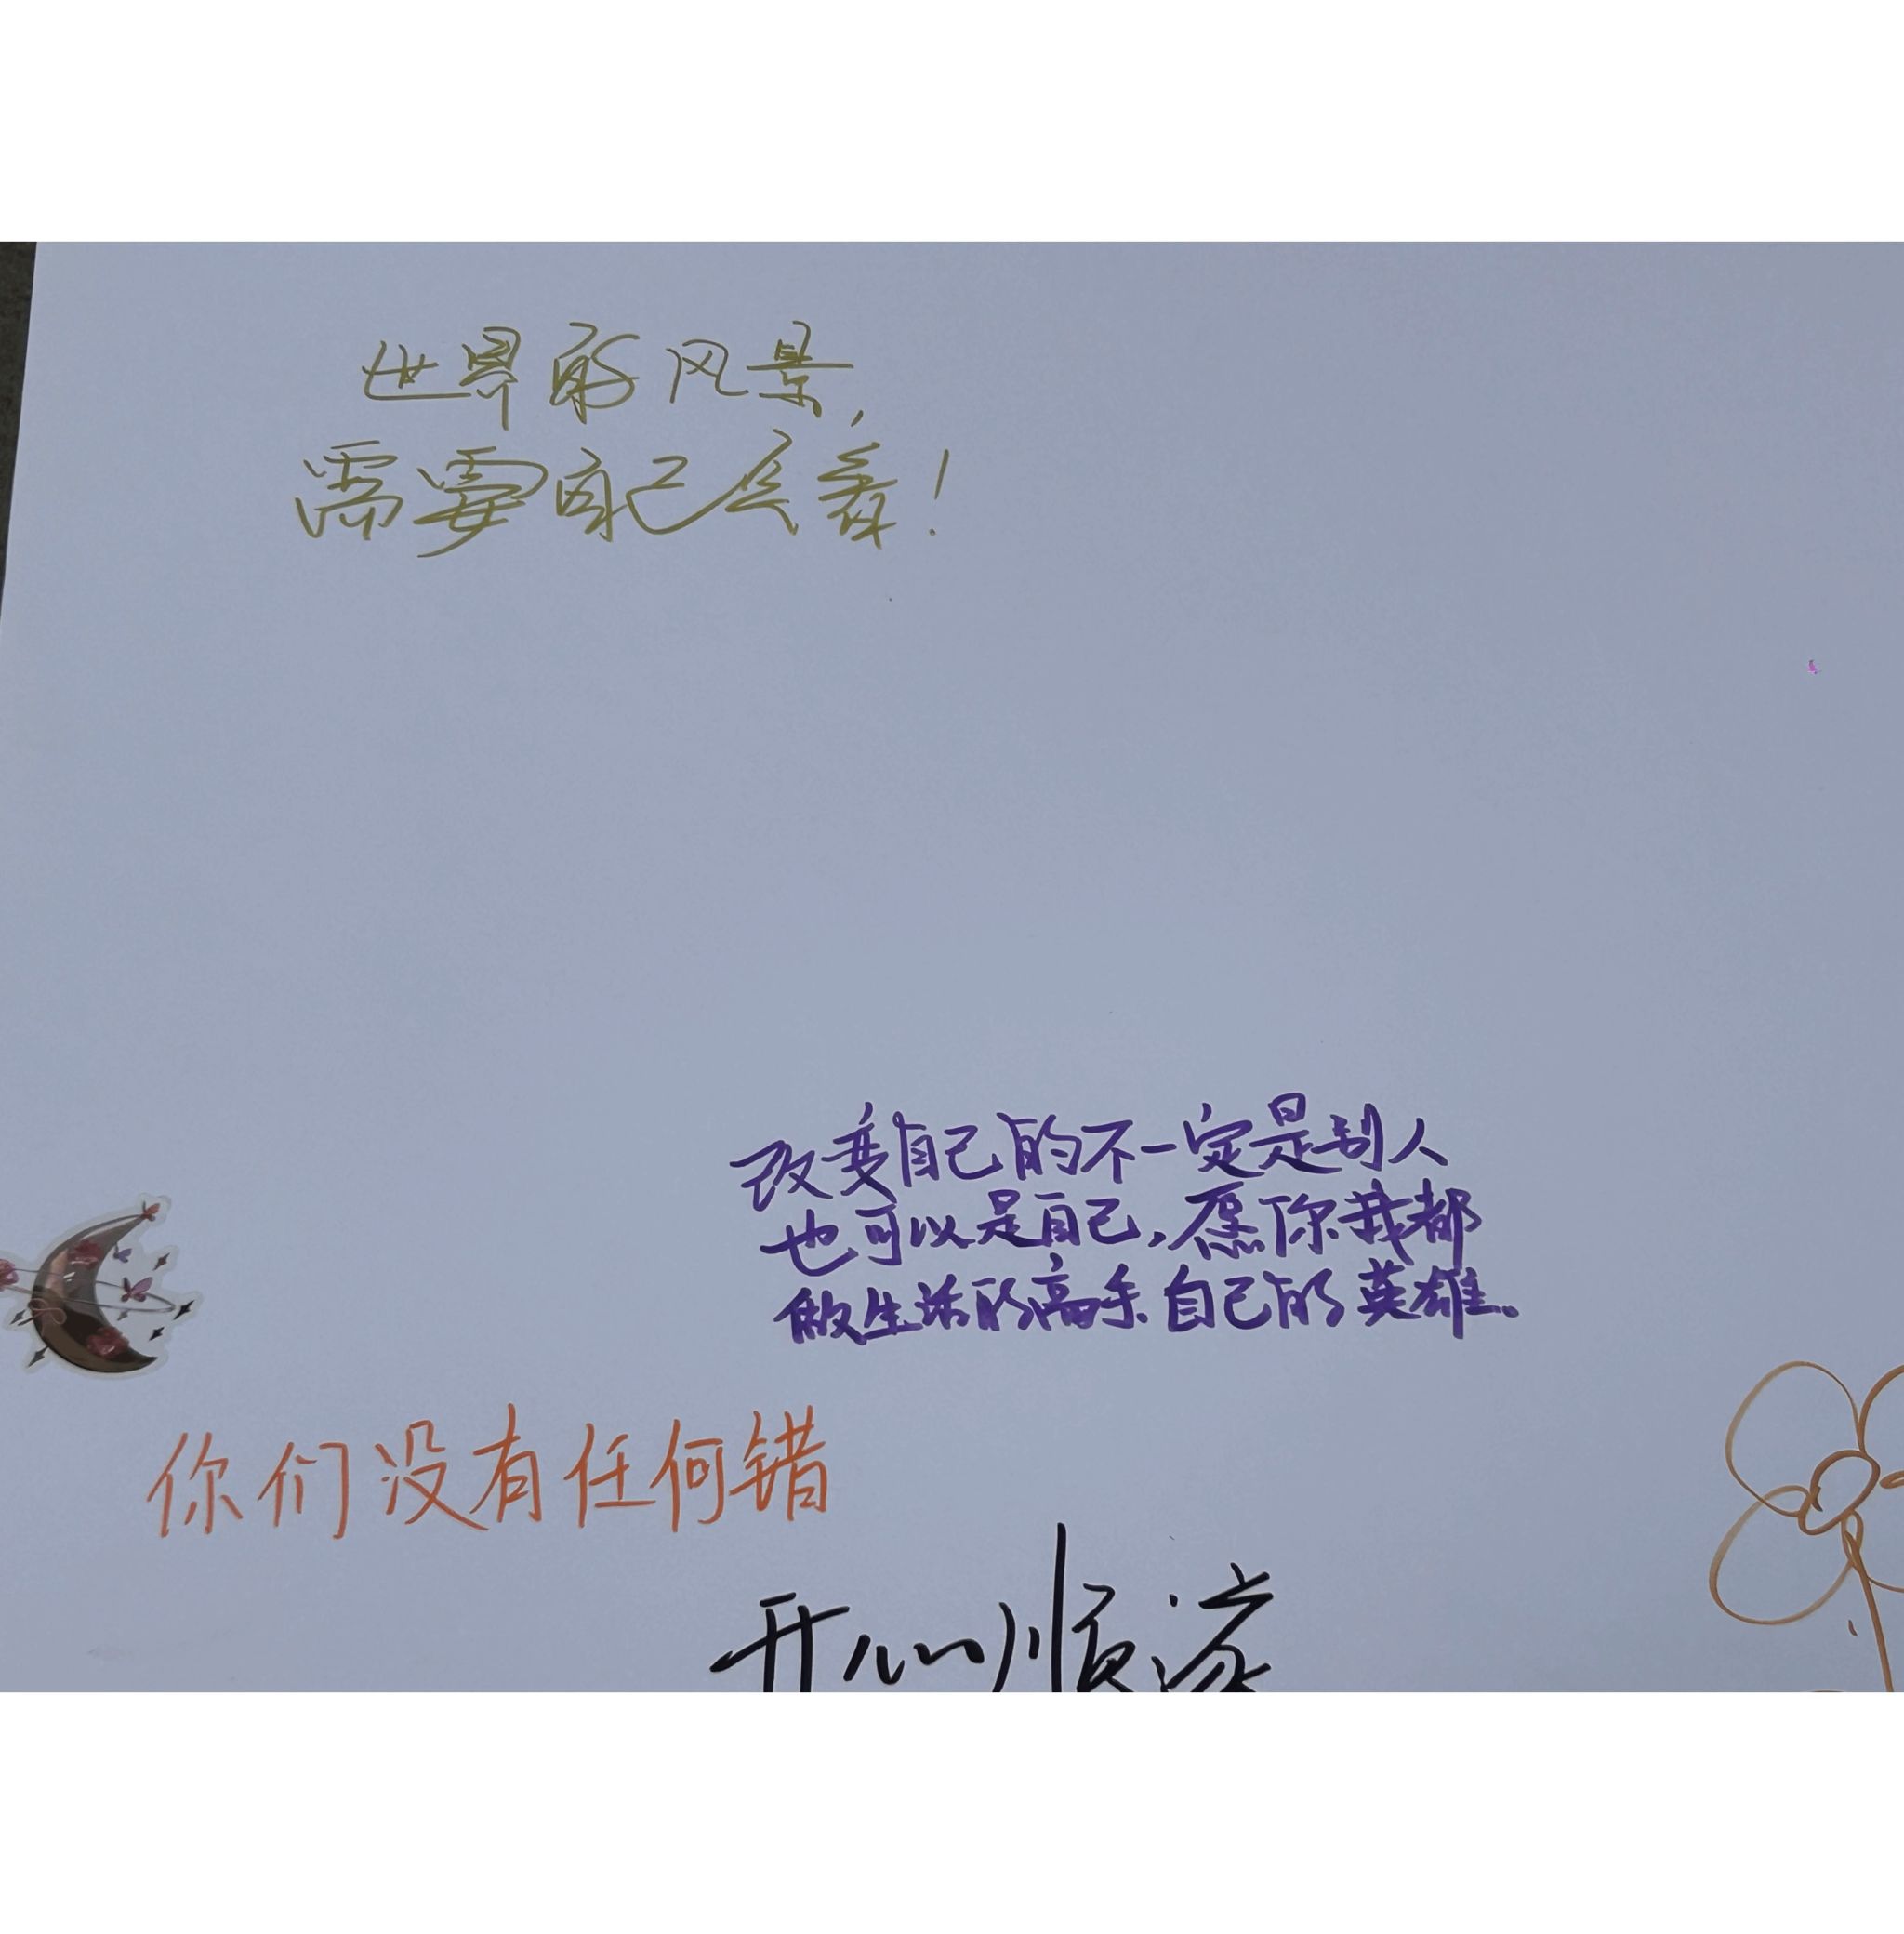 世界的风景，
需要自己去看！
改变自己的不一定是别人
也可以是自己，愿你我都
做生活的高手自己的英雄。
你们没有任何错
开心顺遂